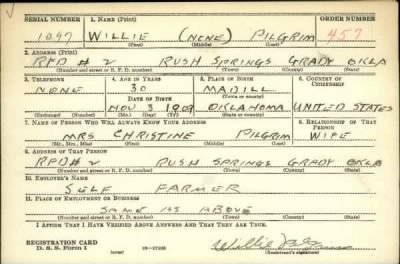 SERIAL NUMBER 1. NAME (Print) ORDER NUMBER
1097 WILLIE (NONE) PILGRIM 457
(First) (Middle) (Last)
2. ADDRESS (Print)
RFD # 2 RUSH SPRINGS GRADY OKLA
(Number and street or R. F. D. number) (Town) (County) (State)
3. TELEPHONE 4. AGE IN YEARS 5. PLACE OF BIRTH 6. COUNTRY OF CITIZENSHIP
NONE 30 MADILL
DATE OF BIRTH
NOV 3 1909 OKLAHOMA UNITED STATES
(Exchange) (Number) (Mo.) (Day) (Yr.) (State or country)
7. NAME OF PERSON WHO WILL ALWAYS KNOW YOUR ADDRESS 8. RELATIONSHIP OF THAT PERSON
MRS CHRISTINE PILGRIM WIFE
(Mr., Mrs., Miss) (First) (Middle) (Last)
9. ADDRESS OF THAT PERSON
RFD # 2 RUSH SPRINGS GRADY OKLA
(Number and street or R. F. D. number) (Town) (County) (State)
10. EMPLOYER'S NAME
SELF FARMER
11. PLACE OF EMPLOYMENT OR BUSINESS
SAME AS ABOVE
(Number and street or R. F. D. number) (Town) (County) (State)
I AFFIRM THAT I HAVE VERIFIED ABOVE ANSWERS AND THAT THEY ARE TRUE.
REGISTRATION CARD
D. S. S. Form 1 (over) Willie
(Registrant's signature)